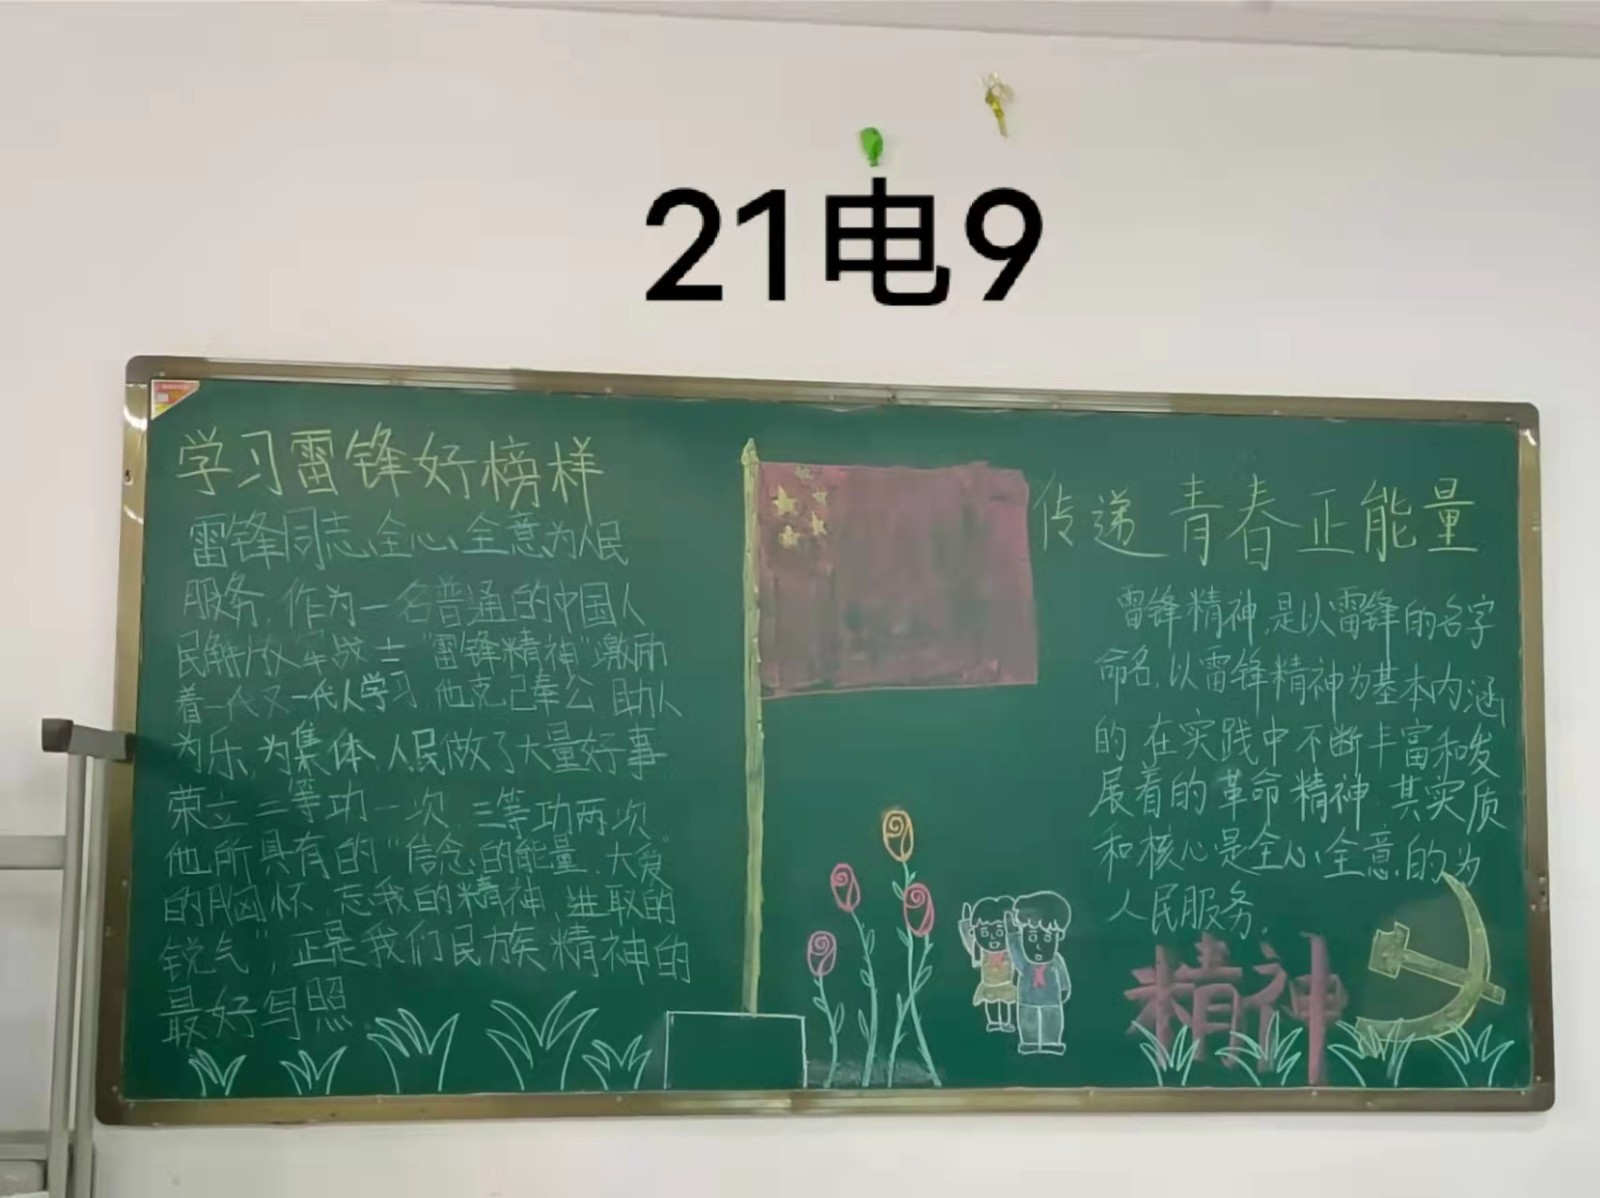 21电9
学习雷锋好榜样
雷锋同志、全心、全意为人民
服务,作为一名普通的中国人
民解放军战士"雷锋精神"激励
着一代又一代人学习 他克己奉公 助人
为乐,为集体 人民做了大量好事
荣立二等功一次 三等功两次
他所具有的"信念的能量、大爱
的胸怀 忘我的精神、进取的
锐气",正是我们民族精神的
最好写照
传递青春正能量
雷锋精神,是以雷锋的名字
命名,以雷锋精神为基本内涵
的 在实践中不断丰富和发
展着的革命精神 其实质
和核心是全心、全意的为
人民服务.
精神